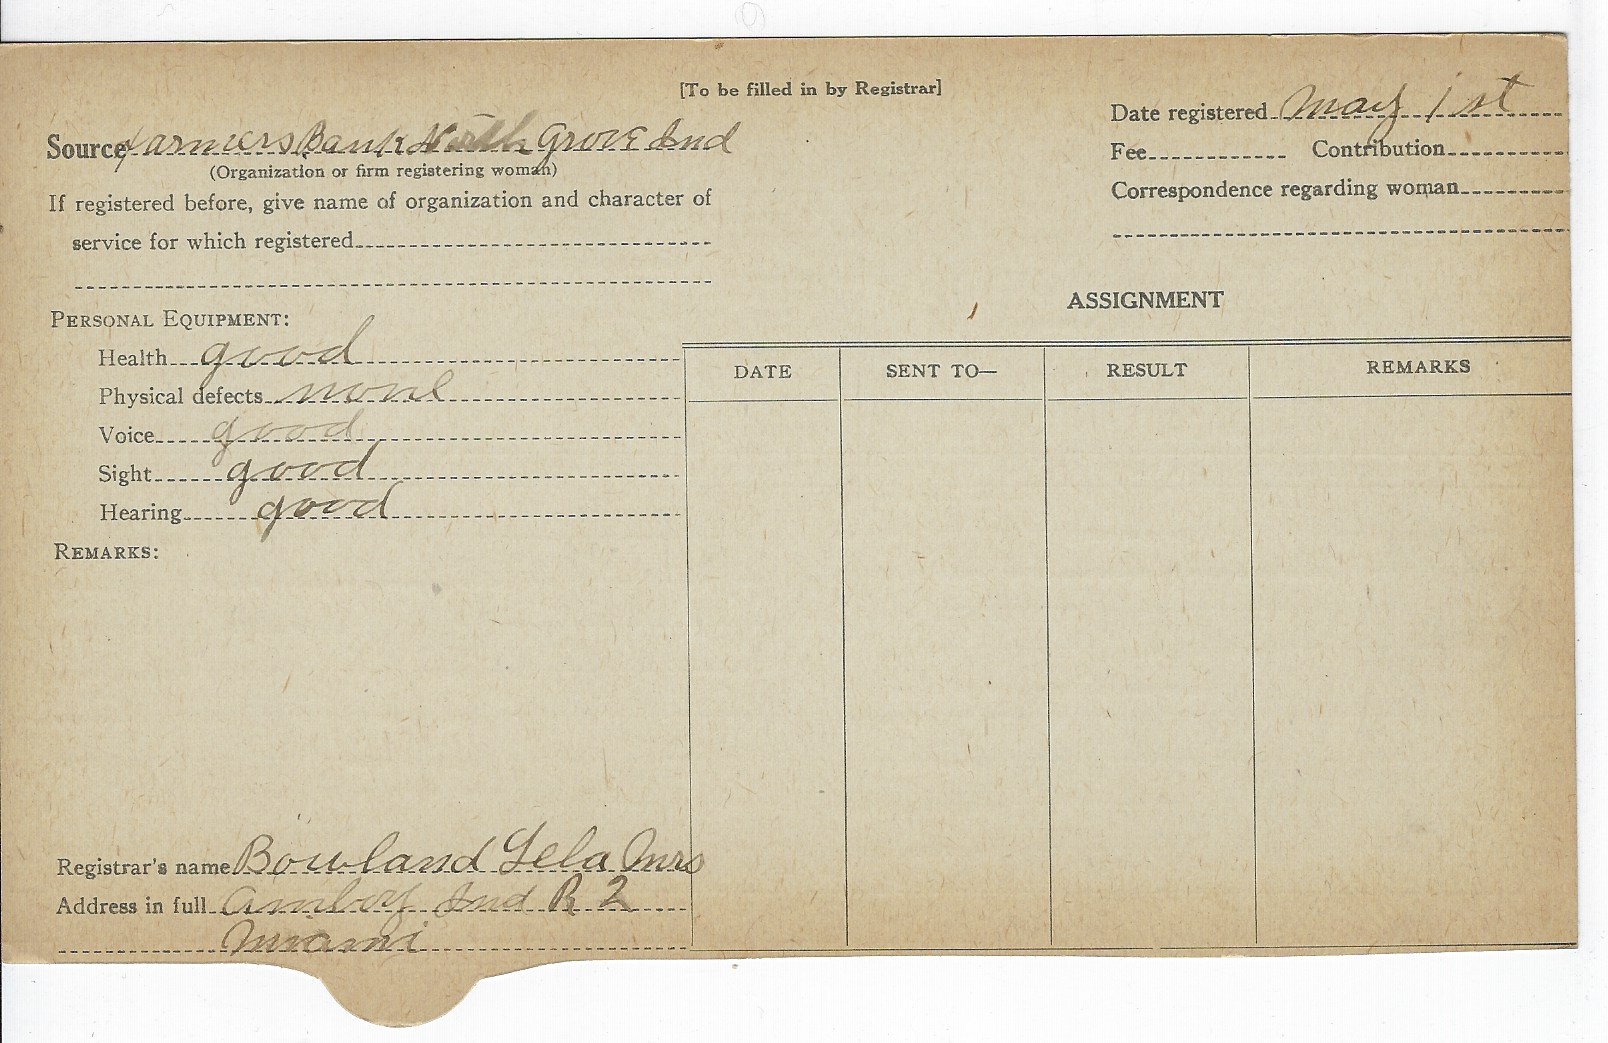 [To be filled in by Registrar]
Date registered May 1st
Source Farmers Bank North Grove Ind
(Organization or firm registering woman)
Fee Contribution
Correspondence regarding woman
If registered before, give name of organization and character of
service for which registered
ASSIGNMENT
PERSONAL EQUIPMENT:
Health good
Physical defects none
Voice good
Sight good
Hearing good
REMARKS:
DATE SENT TO— RESULT REMARKS
Registrar's name Bowland Lela Mrs
Address in full Amboy Ind R 2
Miami